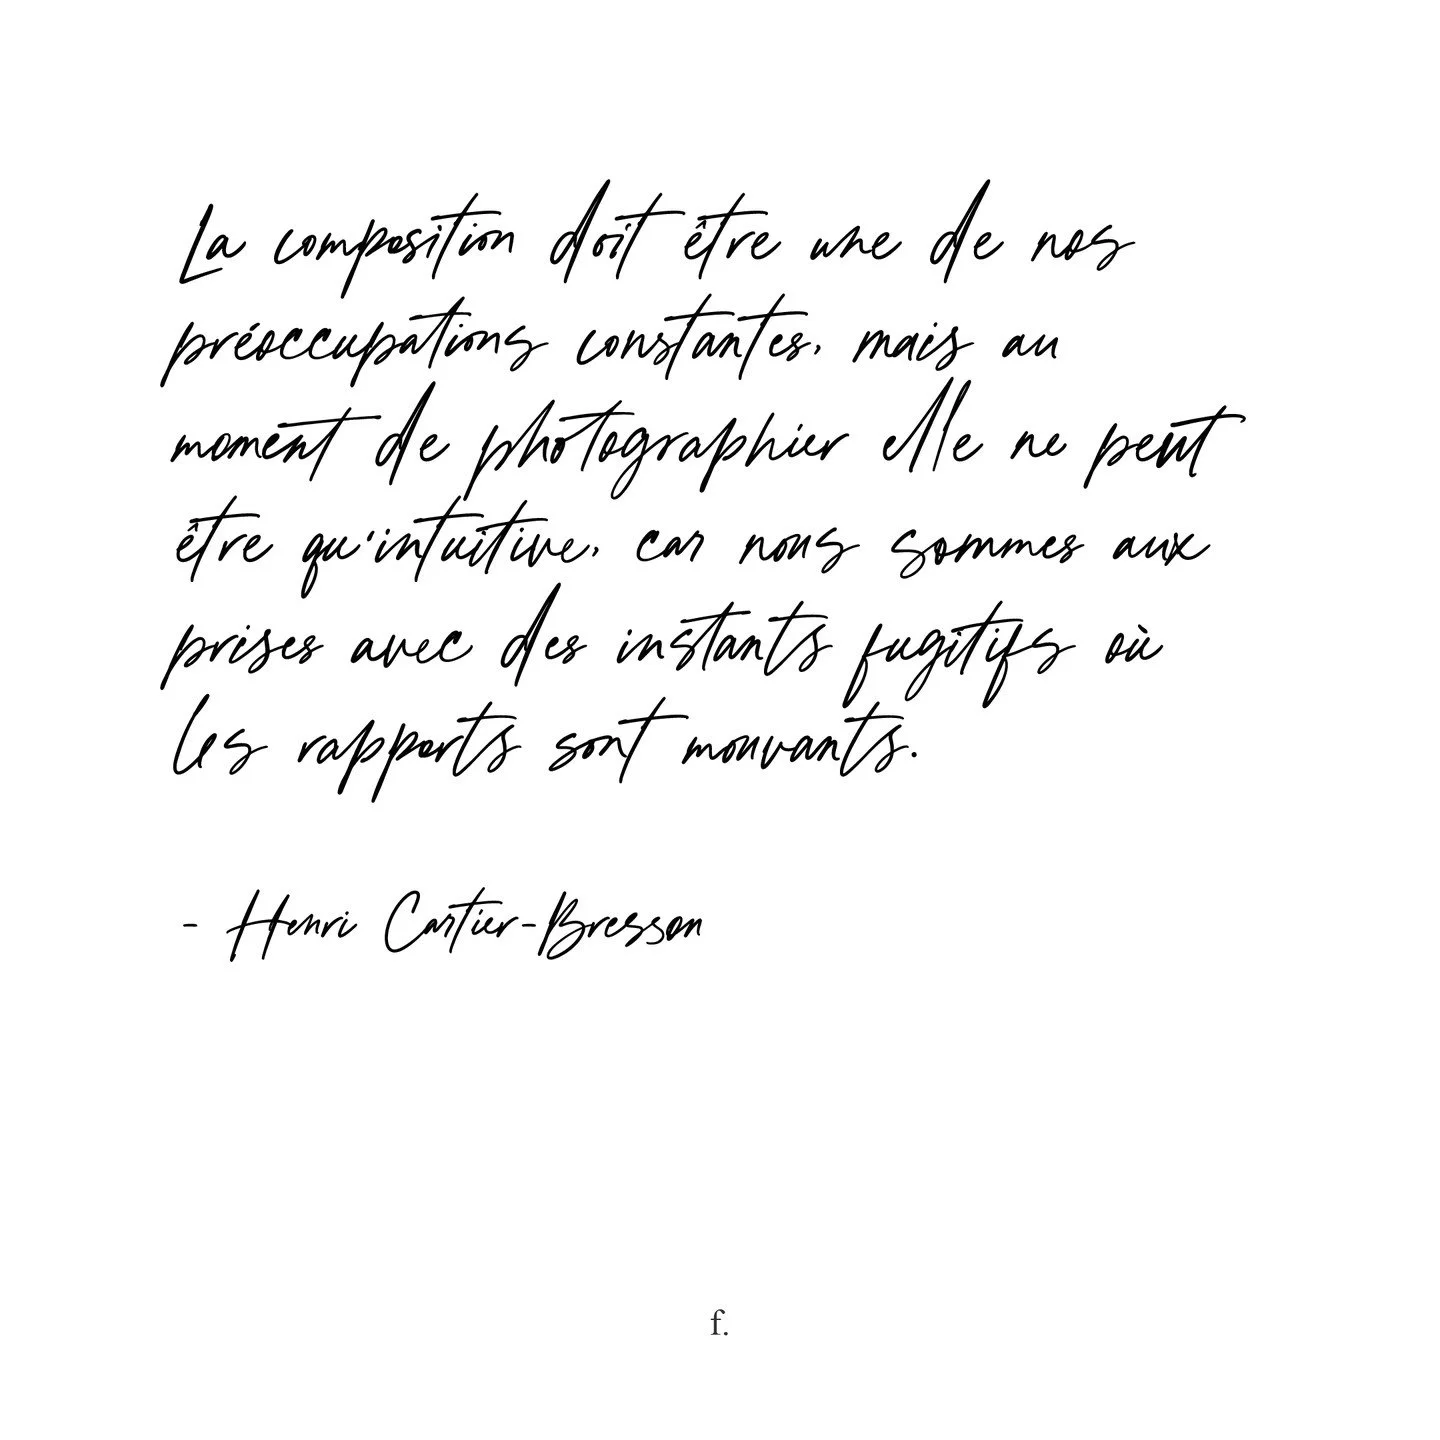 La composition doit être une de nos
préoccupations constantes, mais au
moment de photographier elle ne peut
être qu'intuitive, car nous sommes aux
prises avec des instants fugitifs où
les rapports sont mouvants.
- Henri Cartier-Bresson
f.